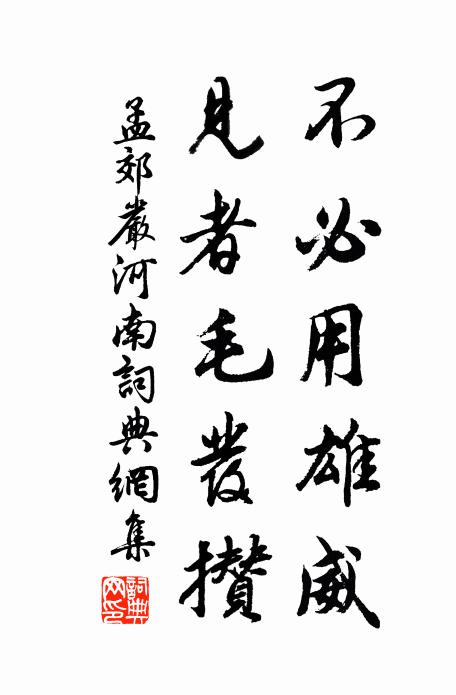 不必用雄威
見者毛發攢
孟郊嚴河南詞典網集
詞典網印